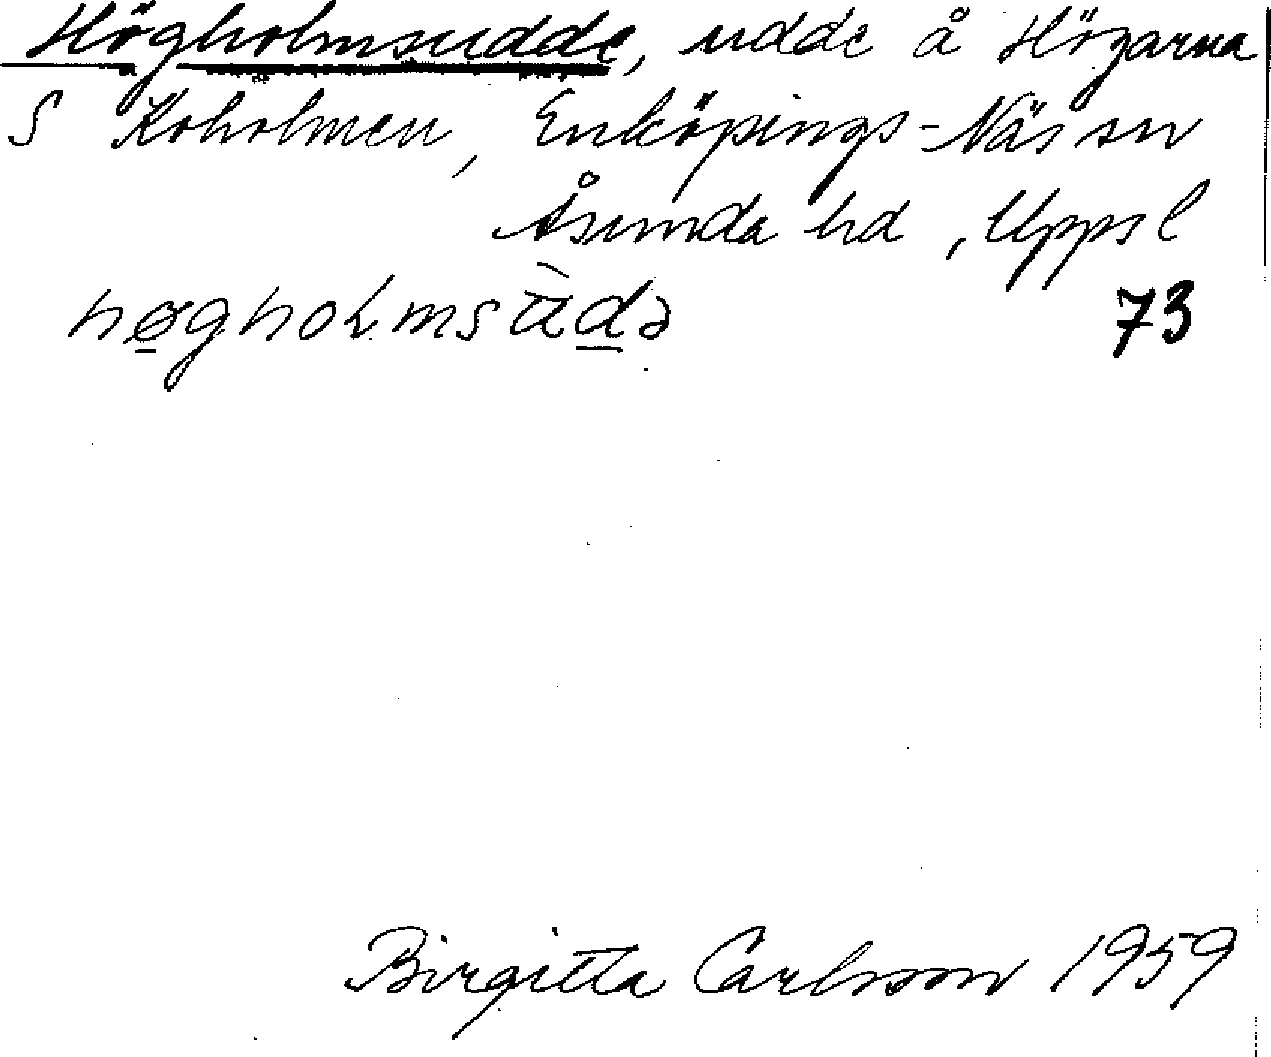 Högholmsudde, udde å Högarna
S Koholmen, Enköpings-Näs sn
Åsunda hd, Uppsl
73
Birgitta Carlsson 1959